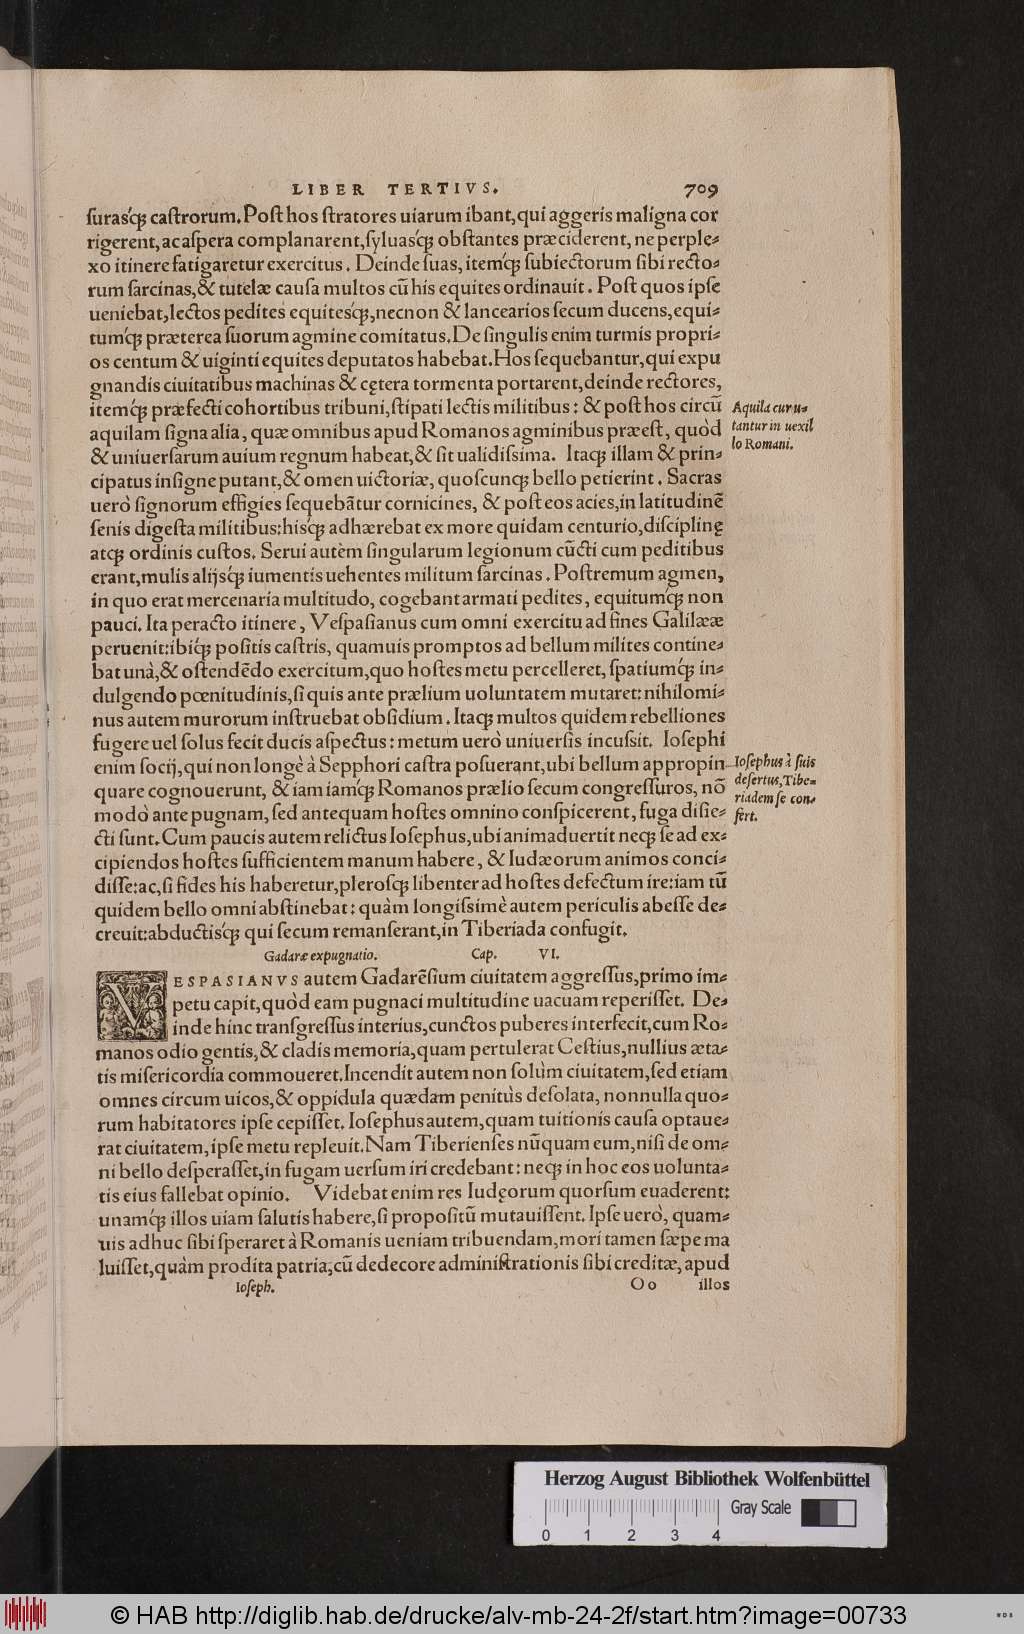 LIBER TERTIVS. 709
ſuraſq́; caſtrorum. Poſt hos ſtratores uiarum ibant, qui aggeris maligna cor
rigerent, ac aſpera complanarent, ſyluaſq́; obſtantes præciderent, ne perple-
xo itinere fatigaretur exercitus. Deinde ſuas, itemq́; ſubiectorum ſibi recto-
rum ſarcinas, & tutelæ cauſa multos cū his equites ordinauit. Poſt quos ipſe
ueniebat, lectos pedites equiteſq́;, necnon & lancearios ſecum ducens, equi-
tumq́; præterea ſuorum agmine comitatus. De ſingulis enim turmis propri-
os centum & uiginti equites deputatos habebat. Hos ſequebantur, qui expu
gnandis ciuitatibus machinas & cętera tormenta portarent, deinde rectores,
itemq́; præfecti cohortibus tribuni, ſtipati lectis militibus: & poſt hos circū
aquilam ſigna alia, quæ omnibus apud Romanos agminibus præeſt, quòd
& uniuerſarum auium regnum habeat, & ſit ualidiſsima. Itaq; illam & prin-
cipatus inſigne putant, & omen uictoriæ, quoſcunq; bello petierint. Sacras
uerò ſignorum effigies ſequebātur cornicines, & poſt eos acies, in latitudinē
ſenis digeſta militibus: hiſq́; adhærebat ex more quidam centurio, diſciplinę
atq; ordinis cuſtos. Serui autèm ſingularum legionum cūcti cum peditibus
erant, mulis alijſq́; iumentis uehentes militum ſarcinas. Poſtremum agmen,
in quo erat mercenaria multitudo, cogebant armati pedites, equitumq́; non
pauci. Ita peracto itinere, Veſpaſianus cum omni exercitu ad fines Galilææ
peruenit: ibiq́; poſitis caſtris, quamuis promptos ad bellum milites contine-
bat unà, & oſtendēdo exercitum, quo hoſtes metu percelleret, ſpatiumq́; in-
dulgendo pœnitudinis, ſi quis ante prælium uoluntatem mutaret: nihilomi-
nus autem murorum inſtruebat obſidium. Itaq; multos quidem rebelliones
fugere uel ſolus fecit ducis aſpectus: metum uerò uniuerſis incuſsit. Ioſephi
enim ſocij, qui non longè à Sepphori caſtra poſuerant, ubi bellum appropin
quare cognouerunt, & iam iamq́; Romanos prælio ſecum congreſſuros, nō
modò ante pugnam, ſed antequam hoſtes omnino conſpicerent, fuga diſie-
cti ſunt. Cum paucis autem relictus Ioſephus, ubi animaduertit neq; ſe ad ex-
cipiendos hoſtes ſufficientem manum habere, & Iudæorum animos conci-
diſſe: ac, ſi fides his haberetur, pleroſq; libenter ad hoſtes defectum ire: iam tū
quidem bello omni abſtinebat: quàm longiſsimè autem periculis abeſſe de-
creuit: abductiſq́; qui ſecum remanſerant, in Tiberiada confugit.
Aquila cur u-
tantur in uexil
lo Romani.
Ioſephus à ſuis
deſertus, Tibe-
riadem ſe con-
fert.
Gadaræ expugnatio. Cap. VI.
VESPASIANVS autem Gadarēſium ciuitatem aggreſſus, primo im-
petu capit, quòd eam pugnaci multitudine uacuam reperiſſet. De-
inde hinc tranſgreſſus interius, cunctos puberes interfecit, cum Ro-
manos odio gentis, & cladis memoria, quam pertulerat Ceſtius, nullius æta-
tis miſericordia commoueret. Incendit autem non ſolùm ciuitatem, ſed etiam
omnes circum uicos, & oppidula quædam penitùs deſolata, nonnulla quo-
rum habitatores ipſe cepiſſet. Ioſephus autem, quam tuitionis cauſa optaue-
rat ciuitatem, ipſe metu repleuit. Nam Tiberienſes nūquam eum, niſi de om-
ni bello deſperaſſet, in fugam uerſum iri credebant: neq; in hoc eos uolunta-
tis eius fallebat opinio. Videbat enim res Iudęorum quorſum euaderent:
unamq́; illos uiam ſalutis habere, ſi propoſitū mutauiſſent. Ipſe uerò, quam-
uis adhuc ſibi ſperaret à Romanis ueniam tribuendam, mori tamen ſæpe ma
luiſſet, quàm prodita patria, cū dedecore adminiſtrationis ſibi creditæ, apud
Ioſeph. Oo illos
Herzog August Bibliothek Wolfenbüttel
Gray Scale
0 1 2 3 4
© HAB http://diglib.hab.de/drucke/alv-mb-24-2f/start.htm?image=00733